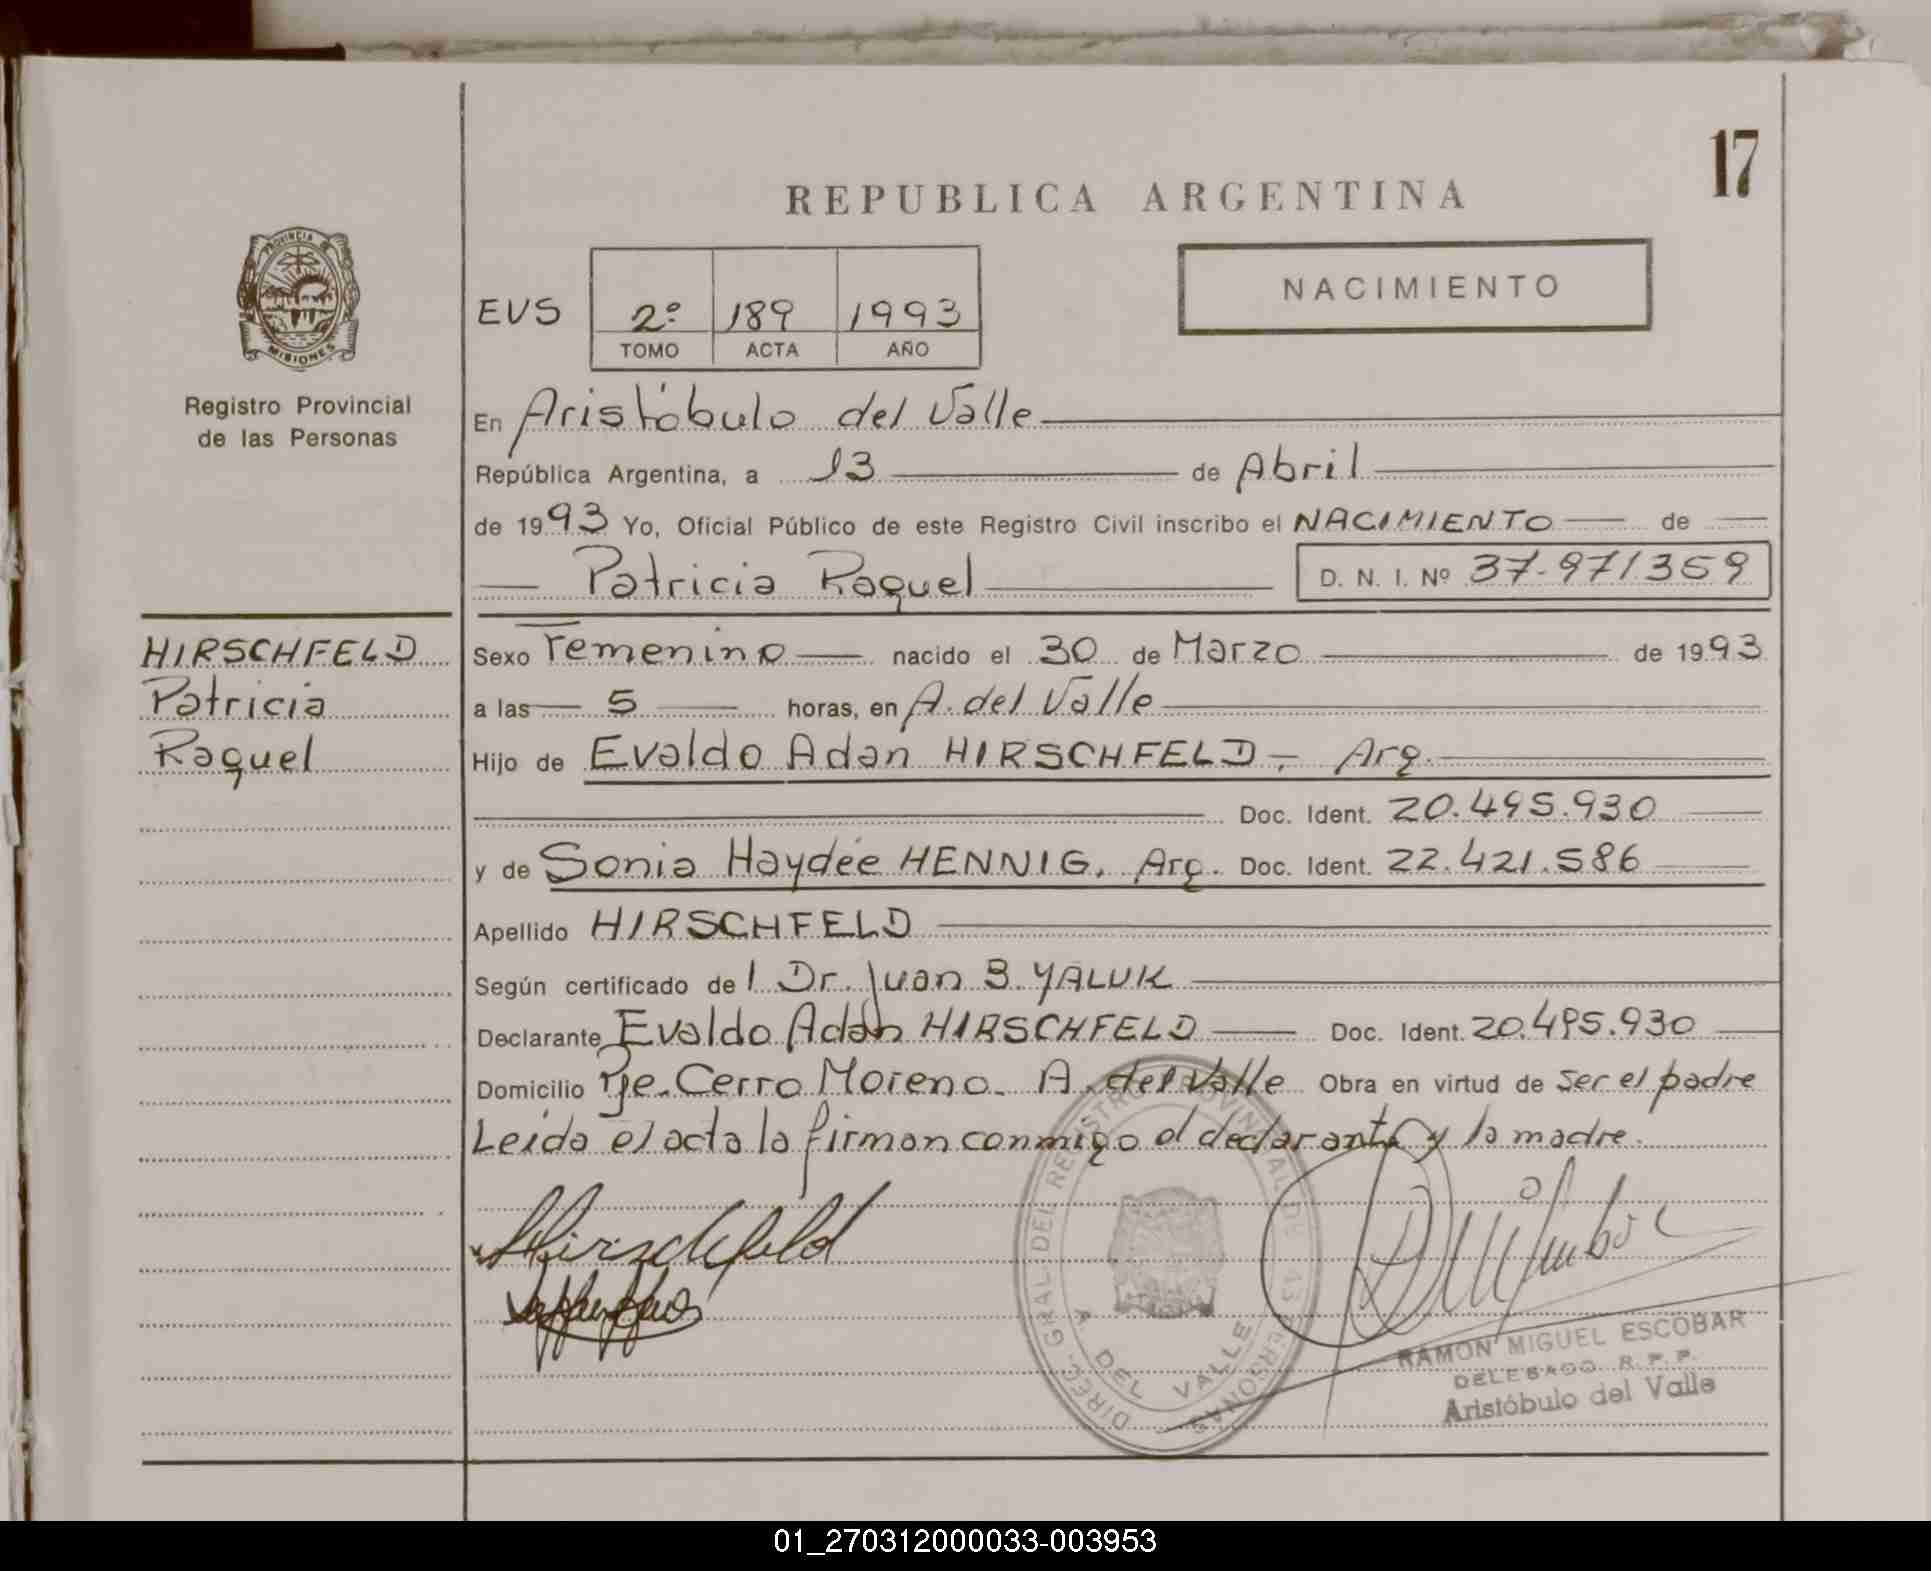 17
REPUBLICA ARGENTINA
PROVINCIA DE
MISIONES
Registro Provincial
de las Personas
NACIMIENTO
EVS 2º 189 1993
TOMO ACTA AÑO
En Aristóbulo del Valle
República Argentina, a 13 de Abril
de 1993 Yo, Oficial Público de este Registro Civil inscribo el NACIMIENTO de
Patricia Raquel D. N. I. Nº 37.971359
HIRSCHFELD
Patricia
Raquel
Sexo Femenino nacido el 30 de Marzo de 1993
a las 5 horas, en A. del Valle
Hijo de Evaldo Adan HIRSCHFELD, Arg.
Doc. Ident. 20.495.930
y de Sonia Haydée HENNIG, Arg. Doc. Ident. 22.421.586
Apellido HIRSCHFELD
Según certificado de l Dr. Juan B. YALUK
Declarante Evaldo Adán HIRSCHFELD Doc. Ident. 20.495.930
Domicilio Pje. Cerro Moreno - A. del Valle Obra en virtud de ser el padre
Leída el acta la firman conmigo el declarante y la madre.
Hirschfeld
DIREC. GRAL. DEL REGISTRO PROVINCIAL DE LAS PERSONAS
A. DEL VALLE
RAMON MIGUEL ESCOBAR
DELEGADO R. P. P.
Aristóbulo del Valle
01_270312000033-003953